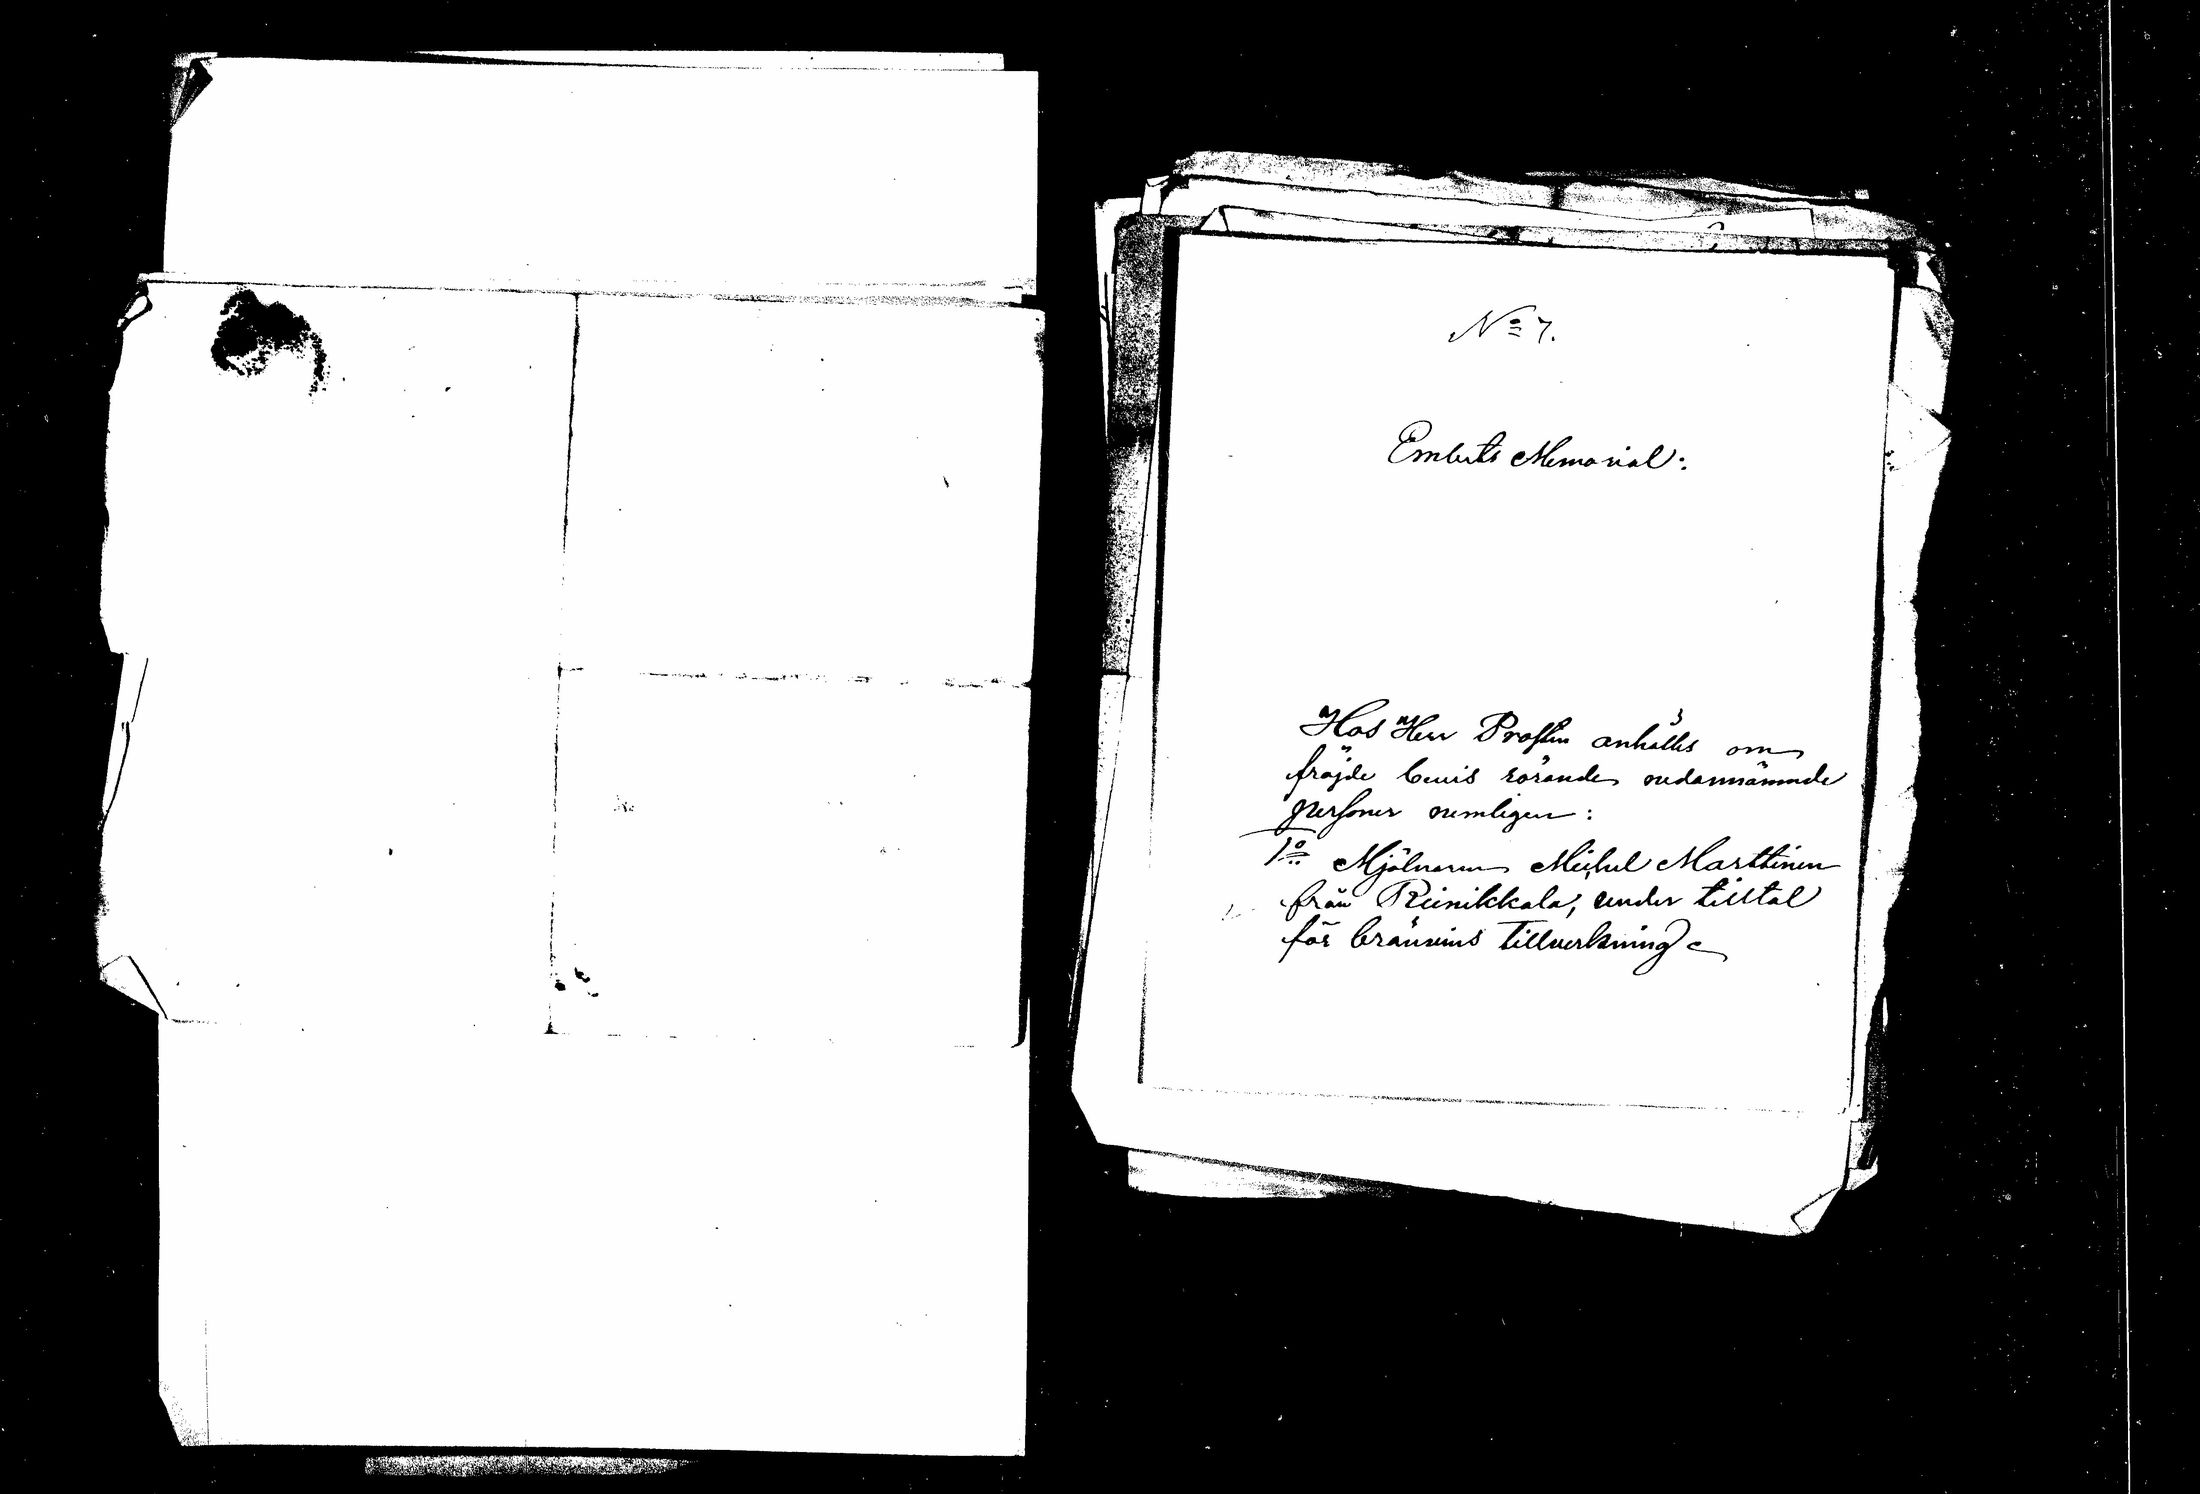 No 7.
Embets Memorial:
Hos Herr Prosten anhålles om
fräjde bevis rörande nedannämnde
personer nemligen:
1o Mjölnaren Michel Marttinen
från Reinikkala, under tilltal
för bränvins tillverkning